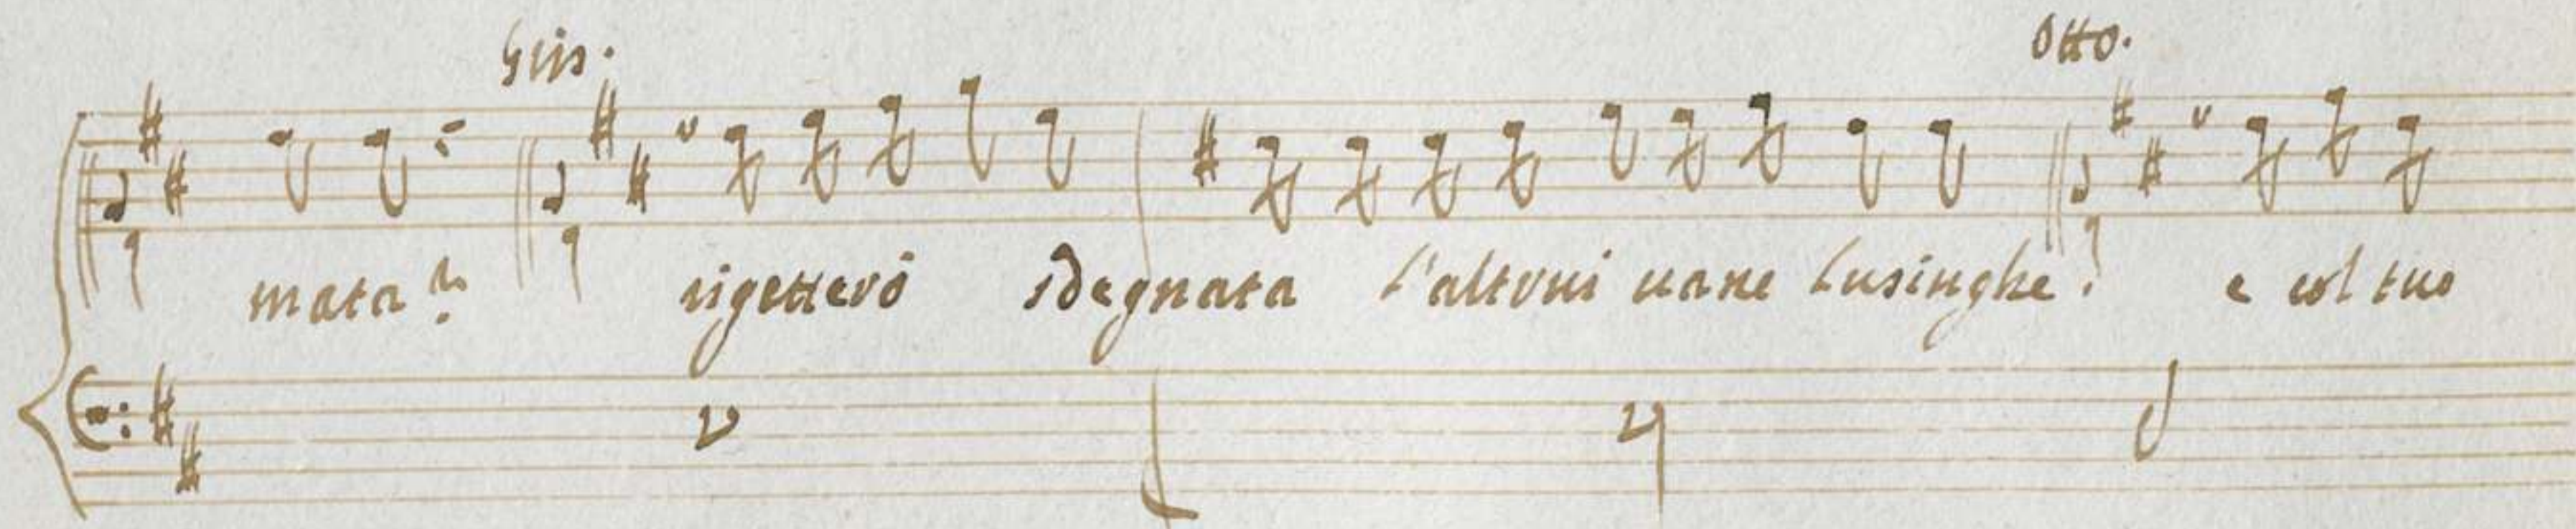 Gris. Otto.
mata? rigetterò sdegnata l'altrui uane lusinghe? e col tuo